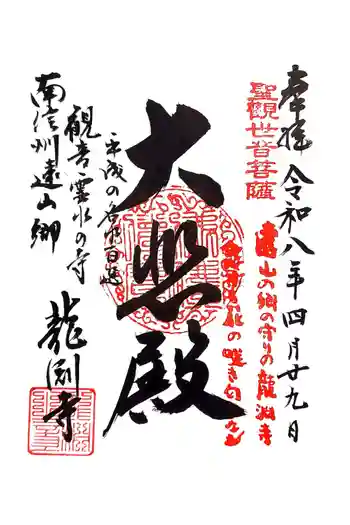 奉拝 令和八年四月廿九日
聖観世音菩薩
遠山の郷の守りの龍淵寺
花の咲き匂ふ
大悲殿
平成の名水百選
観音霊水の寺
南信州遠山郷
龍淵寺